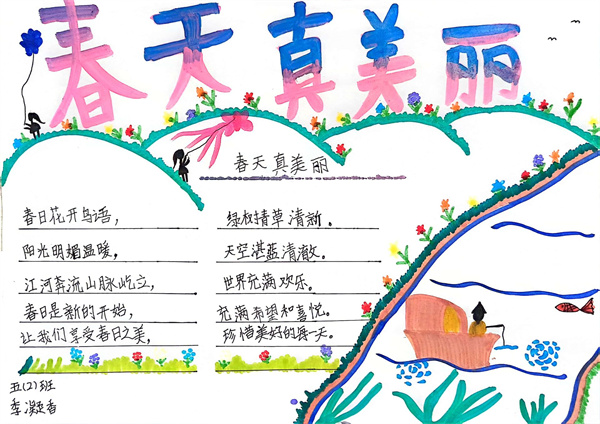 春天真美丽
春天真美丽
春日花开鸟语，
绿杈精草清新。
阳光明媚温暖，
天空湛蓝清澈。
江河奔流山脉屹立，
世界充满欢乐。
春日是新的开始，
充满希望和喜悦。
让我们享受春日之美，
珍惜美好的每一天。
五(2)班
李凝香